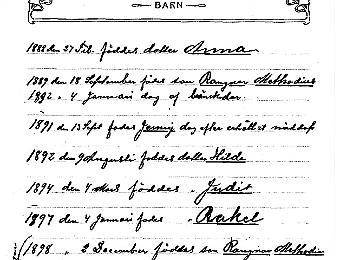 BARN
1888 den 27 Feb. föddes dotter Anna
1889 den 18 September födes son Rangnar Methodius
1892 " 4 Januari dog af
1891 den 13 Sept fodes Jenny dog efter erhållit nöddop
1892 den 9 Augusti foddes dotter Hilda
1894 den 4 föddes " Judit
1897 den 4 Januari fodes " Rakel
1898 " 2 December föddes son Rangnar Methodius